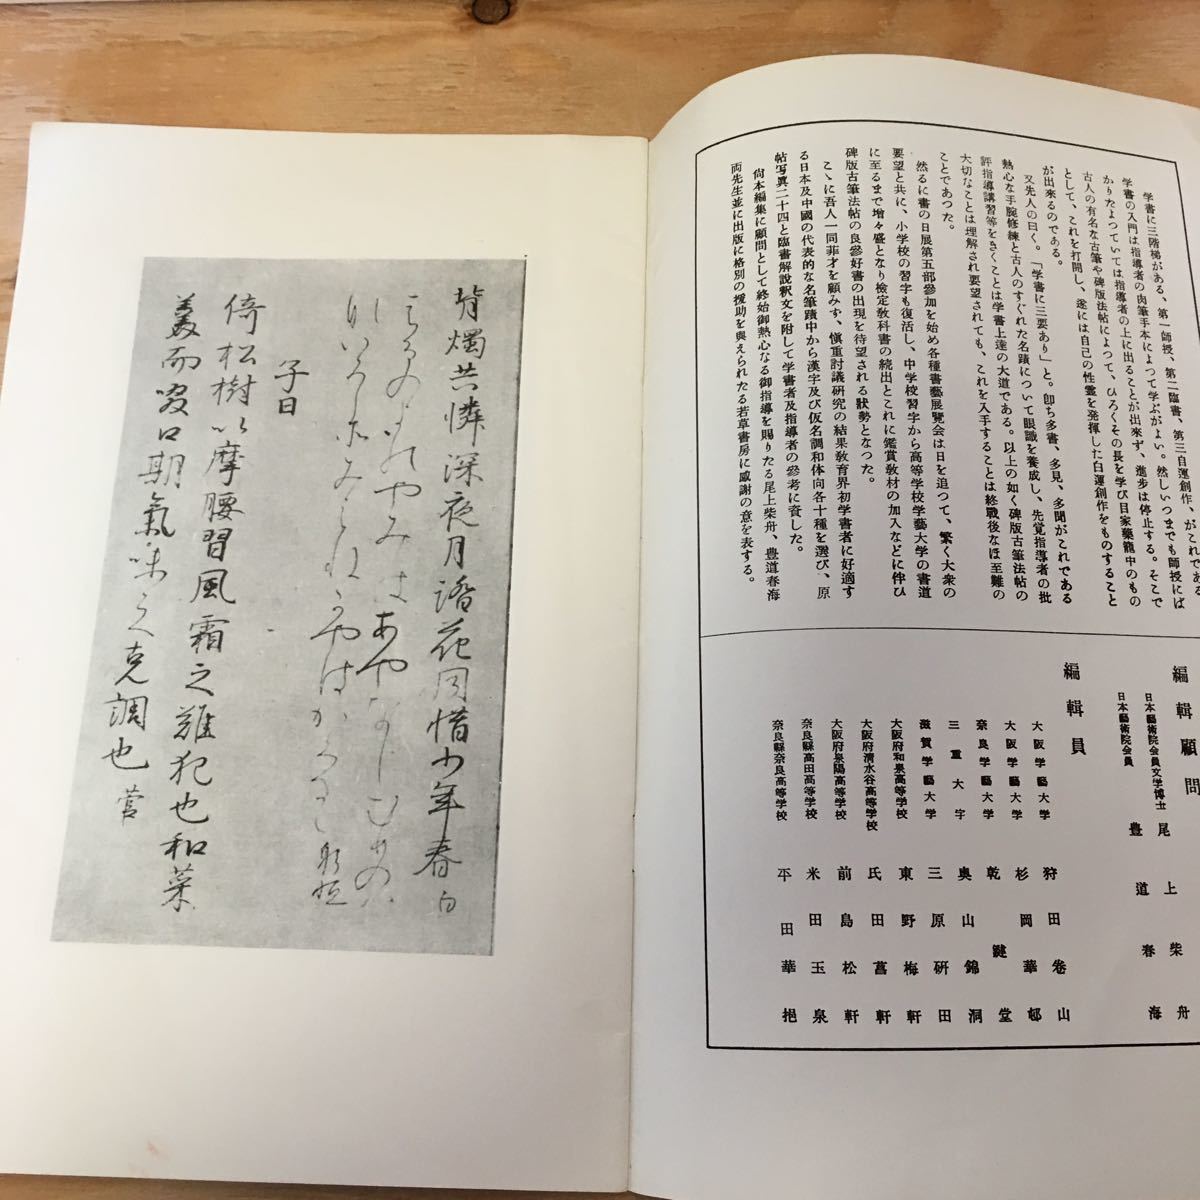 学書に三階梯がある、第一師授、第二臨書、第三自運創作、がこれである
学書の入門は指導者の肉筆手本によつて学ぶがよい。然しいつまでも師授にば
かりたよつていては指導者の上に出ることが出来ず、進歩は停止する。そこで
古人の有名な古筆や碑版法帖によつて、ひろくその長を学び自家薬籠中のもの
として、これを打開し、遂には自己の性霊を発揮した自運創作をものすること
が出来るのである。
又先人の曰く。「学書に三要あり」と。卽ち多書、多見、多聞がこれである
熱心な手腕修練と古人のすぐれた名蹟について眼識を養成し、先覚指導者の批
評指導講習等をきくことは学書上達の大道である。以上の如く碑版古筆法帖の
大切なことは理解され要望されても、これを入手することは終戰後なほ至難の
ことであつた。
然るに書の日展第五部參加を始め各種書藝展覽会は日を追つて、繁く大衆の
要望と共に、小学校の習字も復活し、中学校習字から高等学校学藝大学の書道
に至るまで增々盛となり檢定敎科書の続出とこれに鑑賞敎材の加入などに伴ひ
碑版古筆法帖の良參好書の出現を待望される狀勢となつた。
こゝに吾人一同菲才を顧みず、愼重討議硏究の結果敎育界初学書者に好適す
る日本及中國の代表的な名筆蹟中から漢字及び仮名調和体向各十種を選び、原
帖写眞二十四と臨書解說釈文を附して学書者及指導者の參考に資した。
尙本編集に顧問として終始御熱心なる御指導を賜りたる尾上柴舟、豊道春海
両先生並に出版に格別の援助を與えられたる若草書房に感謝の意を表する。
編輯顧問
日本藝術院会員文学博士 尾上柴舟
日本藝術院会員 豊道春海
編輯員
大阪学藝大学 狩田卷山
大阪学藝大学 杉岡華邨
奈良学藝大学 乾鍵堂
三重大学 奥山錦洞
滋賀学藝大学 三原硏田
大阪府和泉高等学校 東野梅軒
大阪府清水谷高等学校 氏田菖軒
大阪府泉陽高等学校 前島松軒
奈良縣高田高等学校 米田玉泉
奈良縣奈良高等学校 平田華挹
背燭共憐深夜月蹈花同惜少年春 白
はるのよのやみはあやなしむめのは
ないろこそみえねかやはかくるゝ 躬恒
子日
倚松樹以摩腰習風霜之難犯也和菜
羹而啜口期氣味之克調也 菅